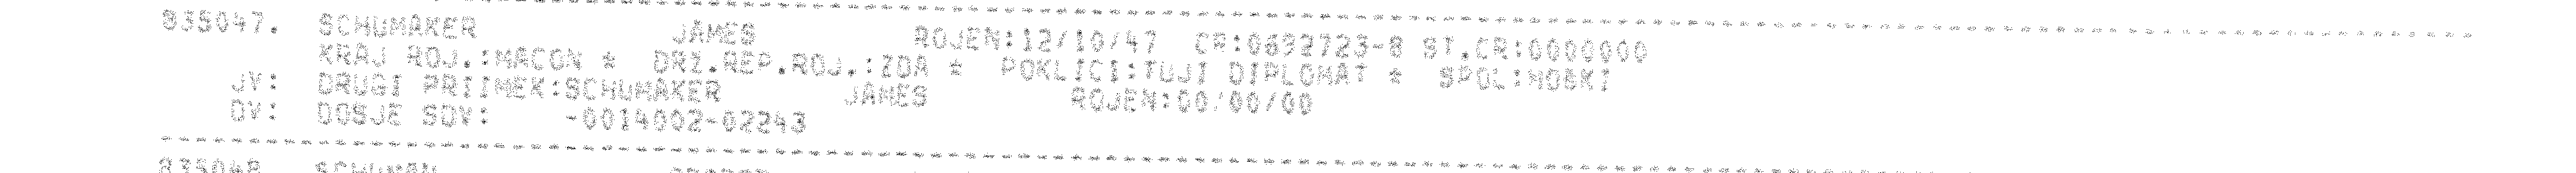 835047. SCHUMAKER JAMES ROJEN:12/10/47 CR:0692723-8 ST.CR:0000000
KRAJ ROJ.:MACON * DRZ.REP.ROJ.:ZDA * POKLICI:TUJI DIPLOMAT * SPOL:MOSKI
JV: DRUGI PRIIMEK:SCHUMAKER JAMES ROJEN:00/00/00
DV: DOSJE SDV: -0014002-02243
835048 SCHUMAN